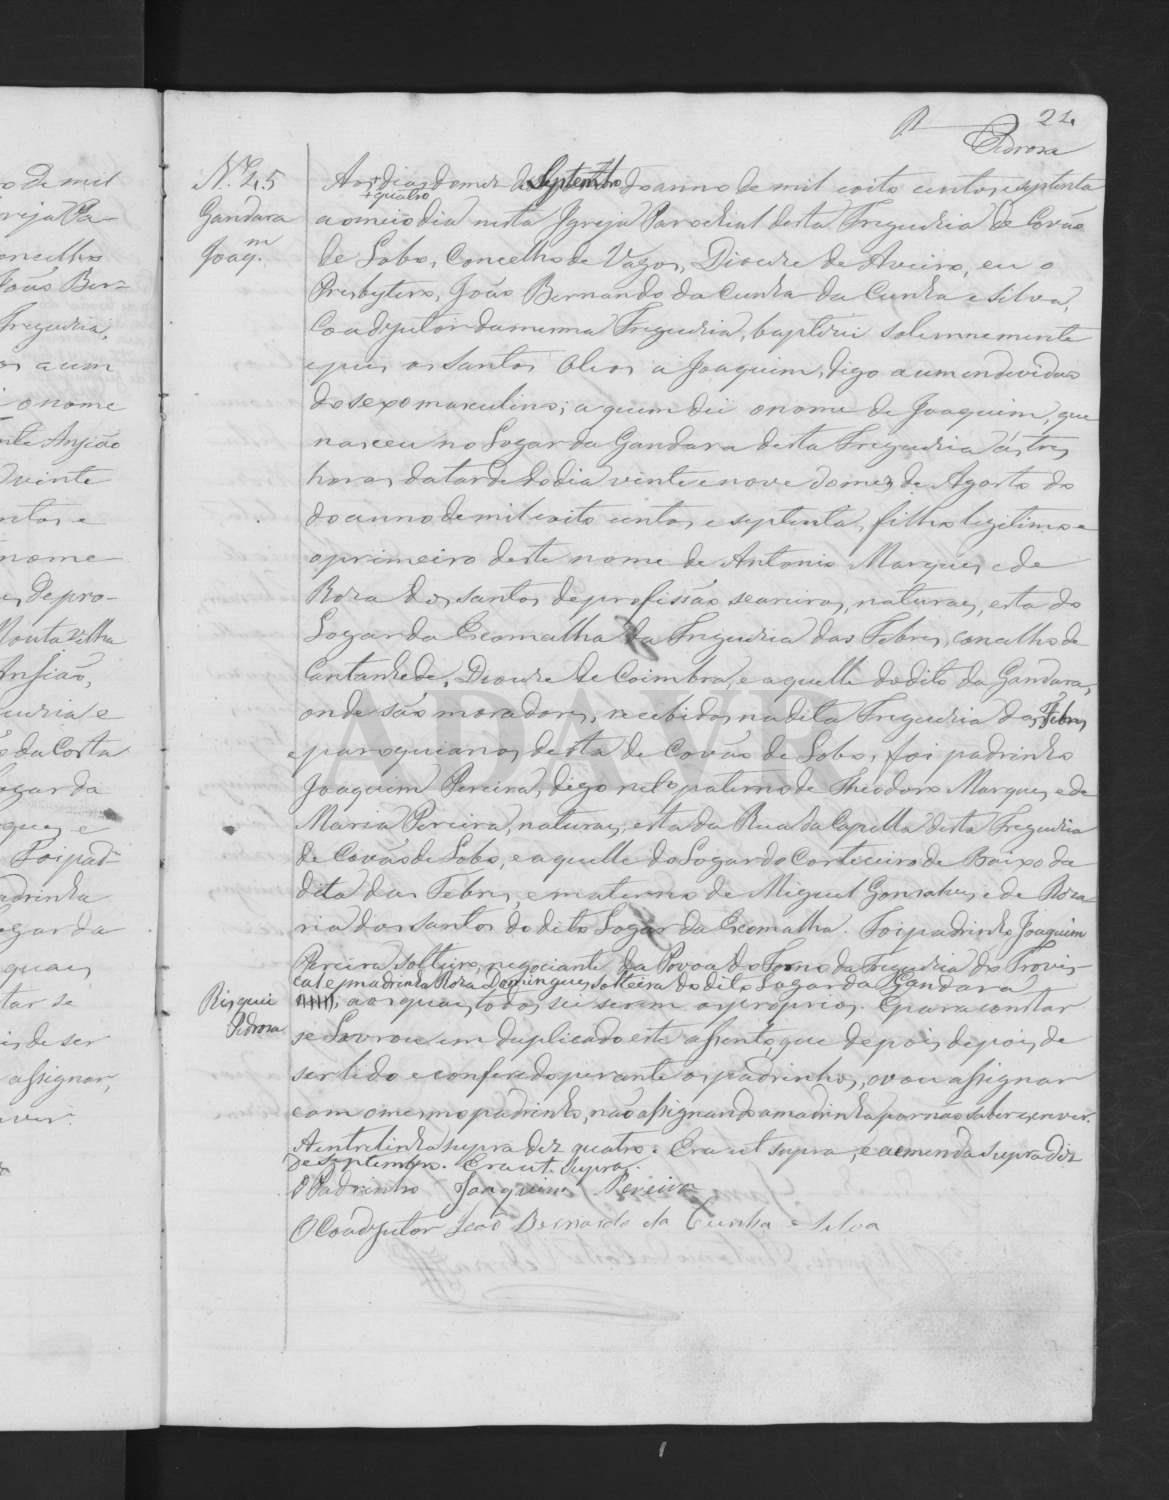 21
Pedroza
N.º 45
Gandara
Joaq.m
Aos dias do mez de Septembro do anno de mil oito centos e septenta
+quatro
ao meio dia nesta Igreja Parochial desta Freguezia de Covão
de Lobo, Concelho de Vagos, Diocese de Aveiro, eu o
Presbytero, João Bernardo da Cunha da Cunha e Silva,
Coadjutor da mesma Freguezia, baptizei solemnemente
e puz os Santos Oleos a Joaquim, digo a um endeviduo
do sexo masculino; a quem dei o nome de Joaquim, que
nasceu no Logar da Gandara desta Freguezia ás tres
horas da tarde do dia vinte e nove do mez de Agosto do
do anno de mil oito centos e septenta, filho legitimo e
o primeiro deste nome de Antonio Marques e de
Roza dos Santos de profissão seareiros, naturaes, esta do
Logar da Escomalha da Freguezia das Febres, concelho de
Cantanhede, Diocese de Coimbra, e aquelle do dito da Gandara,
onde são moradores, recebidos na dita Freguezia das Febres
e paroquianos desta de Covão de Lobo, foi padrinho
Joaquim Pereira, digo neto paterno de Theodoro Marques e de
Maria Pereira, naturaes, esta da Rua da Capella desta Freguezia
de Covão de Lobo, e aquelle do Logar do Corticeiro de Baixo da
dita das Febres, e materno de Miguel Gonsalves e de Roza
ria dos Santos do dito Logar da Escomalha. Foi padrinho Joaquim
Pereira solteiro, negociante, da Povoa do Forno da Freguezia do Trovis-
cal e madrinha Roza Domingues solteira do dito Logar da Gandara
aos quaes todos sei serem os proprios. E para constar
Risquei
Pedroza
se Lavrou em duplicado este assento, que depois, depois de
ser lido e conferedo perante os padrinhos, o vou assignar
com o mesmo padrinho, não assignando a madrinha por não saber escrever.
A entrelinha supra diz quatro. Era ut supra, e a emenda supra diz
de Septembro. Era ut supra.
O Padrinho Joaquim Pereira
O Coadjutor João Bernardo da Cunha e Silva
ADAVR
o de mil
reja Pa-
oncelho
João Ber-
Freguezia,
os a um
o nome
vinte
ntos e
nome
es, de pro-
Ansião,
uezia e
da Costa
ogar da
ques e
Foi pad-
adrinha
ogar da
quaes
tar se
is de ser
assignar,
ever.